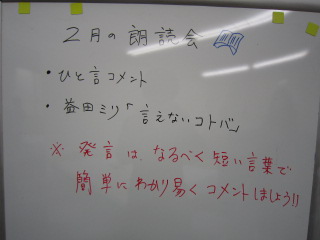 2月の朗読会
・ひと言コメント
・益田ミリ「言えないコトバ」
※発言は、なるべく短い言葉で
簡単にわかり易くコメントしましょう!!